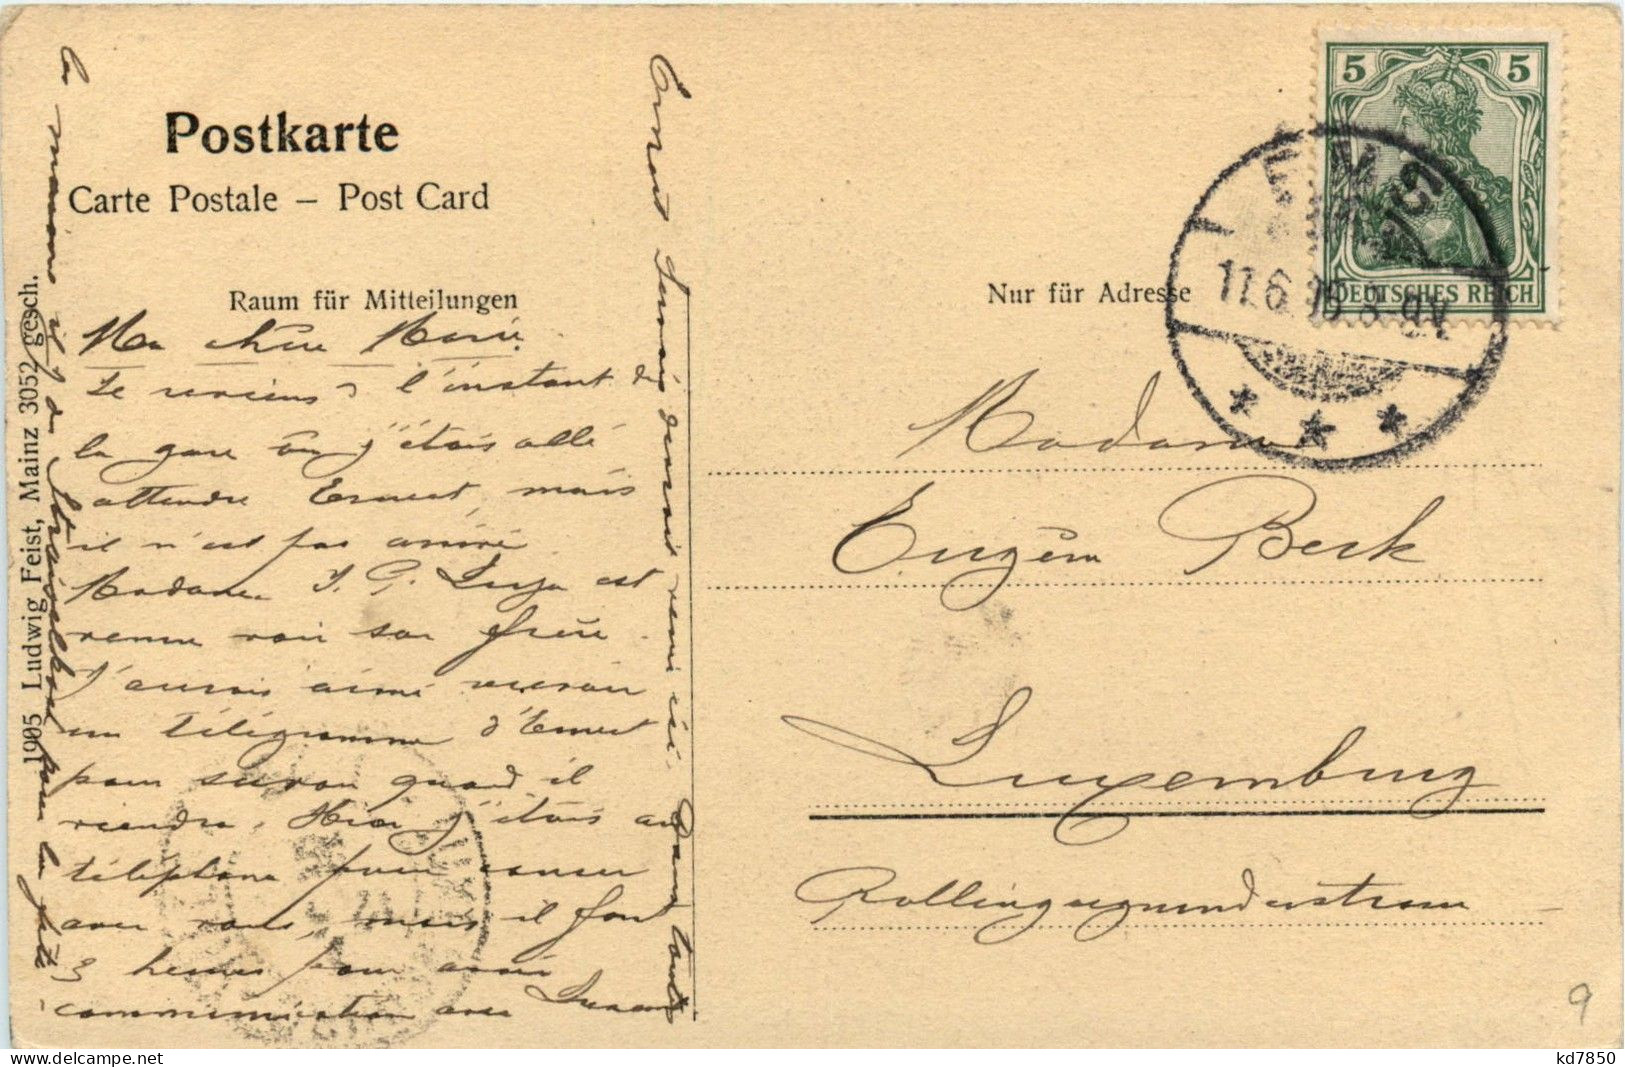 Postkarte
Carte Postale – Post Card
Raum für Mitteilungen
Nur für Adresse
5 5
DEUTSCHES REICH
EMS
11.6. 8-9V
* * *
Ma chère Marie.
Je reviens à l'instant de
la gare où j'étais allé
attendre Ernest, mais
il n'est pas arrivé.
Madame J. P. est
venue voir son frère.
J'aurais aimé recevoir
un télégramme d'Ernest
pour savoir quand il
viendra. Hier j'étais au
téléphone pour causer
avec vous, mais il faut
3 heures pour avoir
communication avec Luxem
la maison il y a des pour la fête
Madame
Eugène Beck
Luxemburg
Rollingergrunderstrasse
1905 Ludwig Feist, Mainz 3052 gesch.
9
kd7850